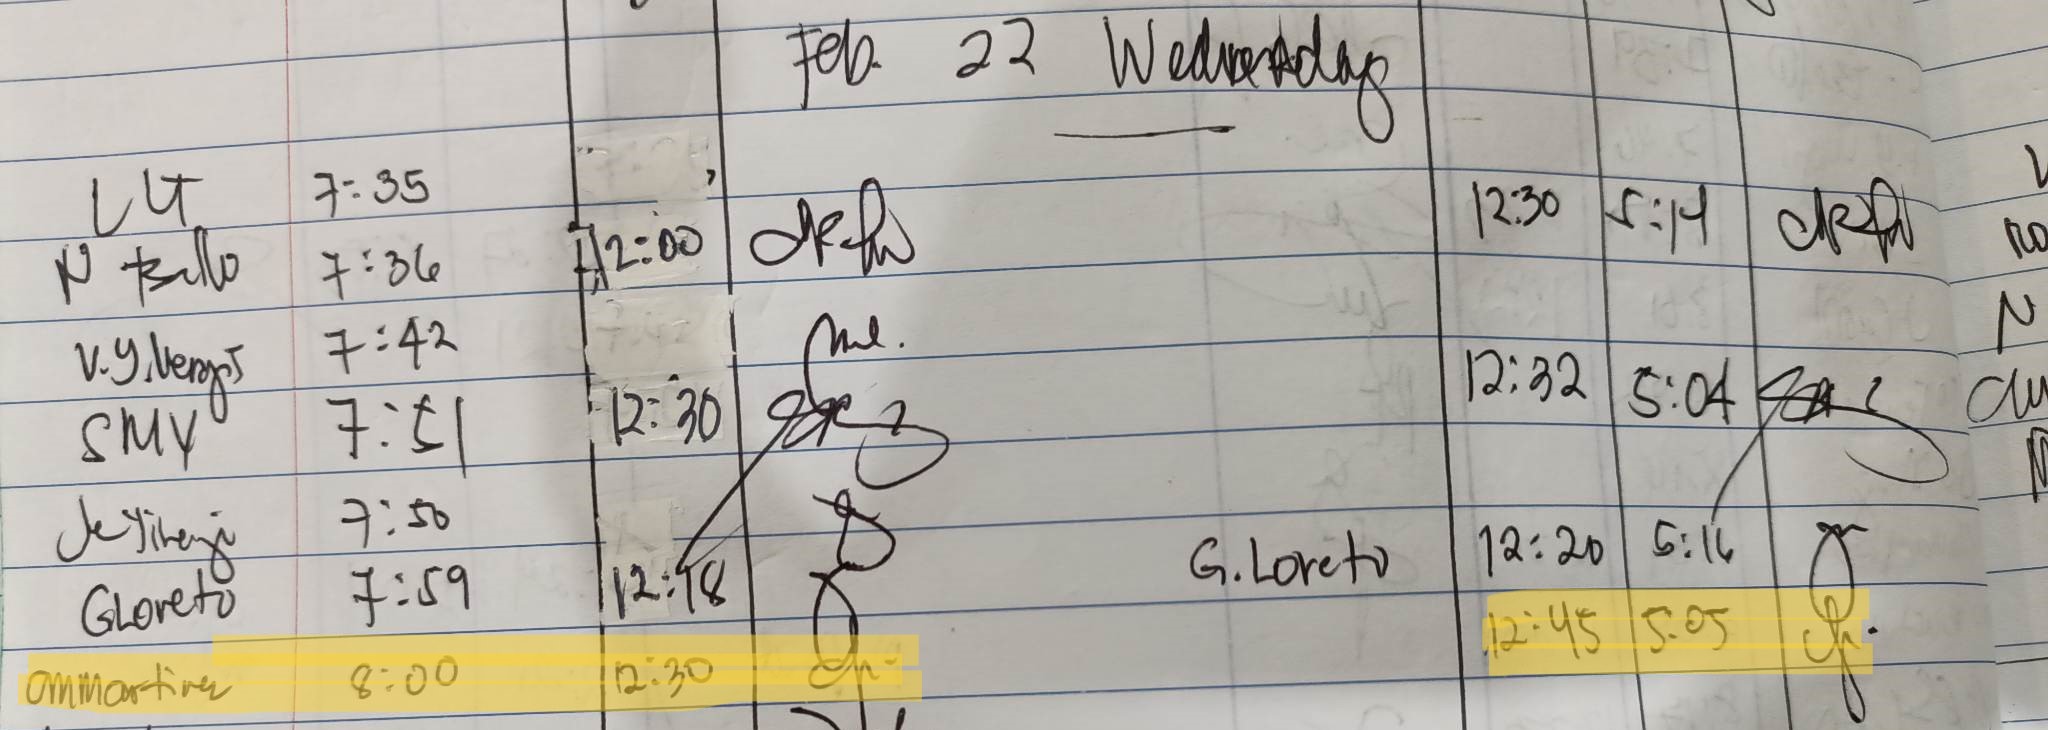 Feb. 22 Wednesday
LUT 7:35
N Bello 7:36 12:00 12:30 5:14
V.Y. 7:42
SMV 7:51 12:30 12:32 5:04
7:50
GLoreto 7:59 12:18 G.Loreto 12:20 5:16
ommartinez 8:00 12:30 12:45 5:05